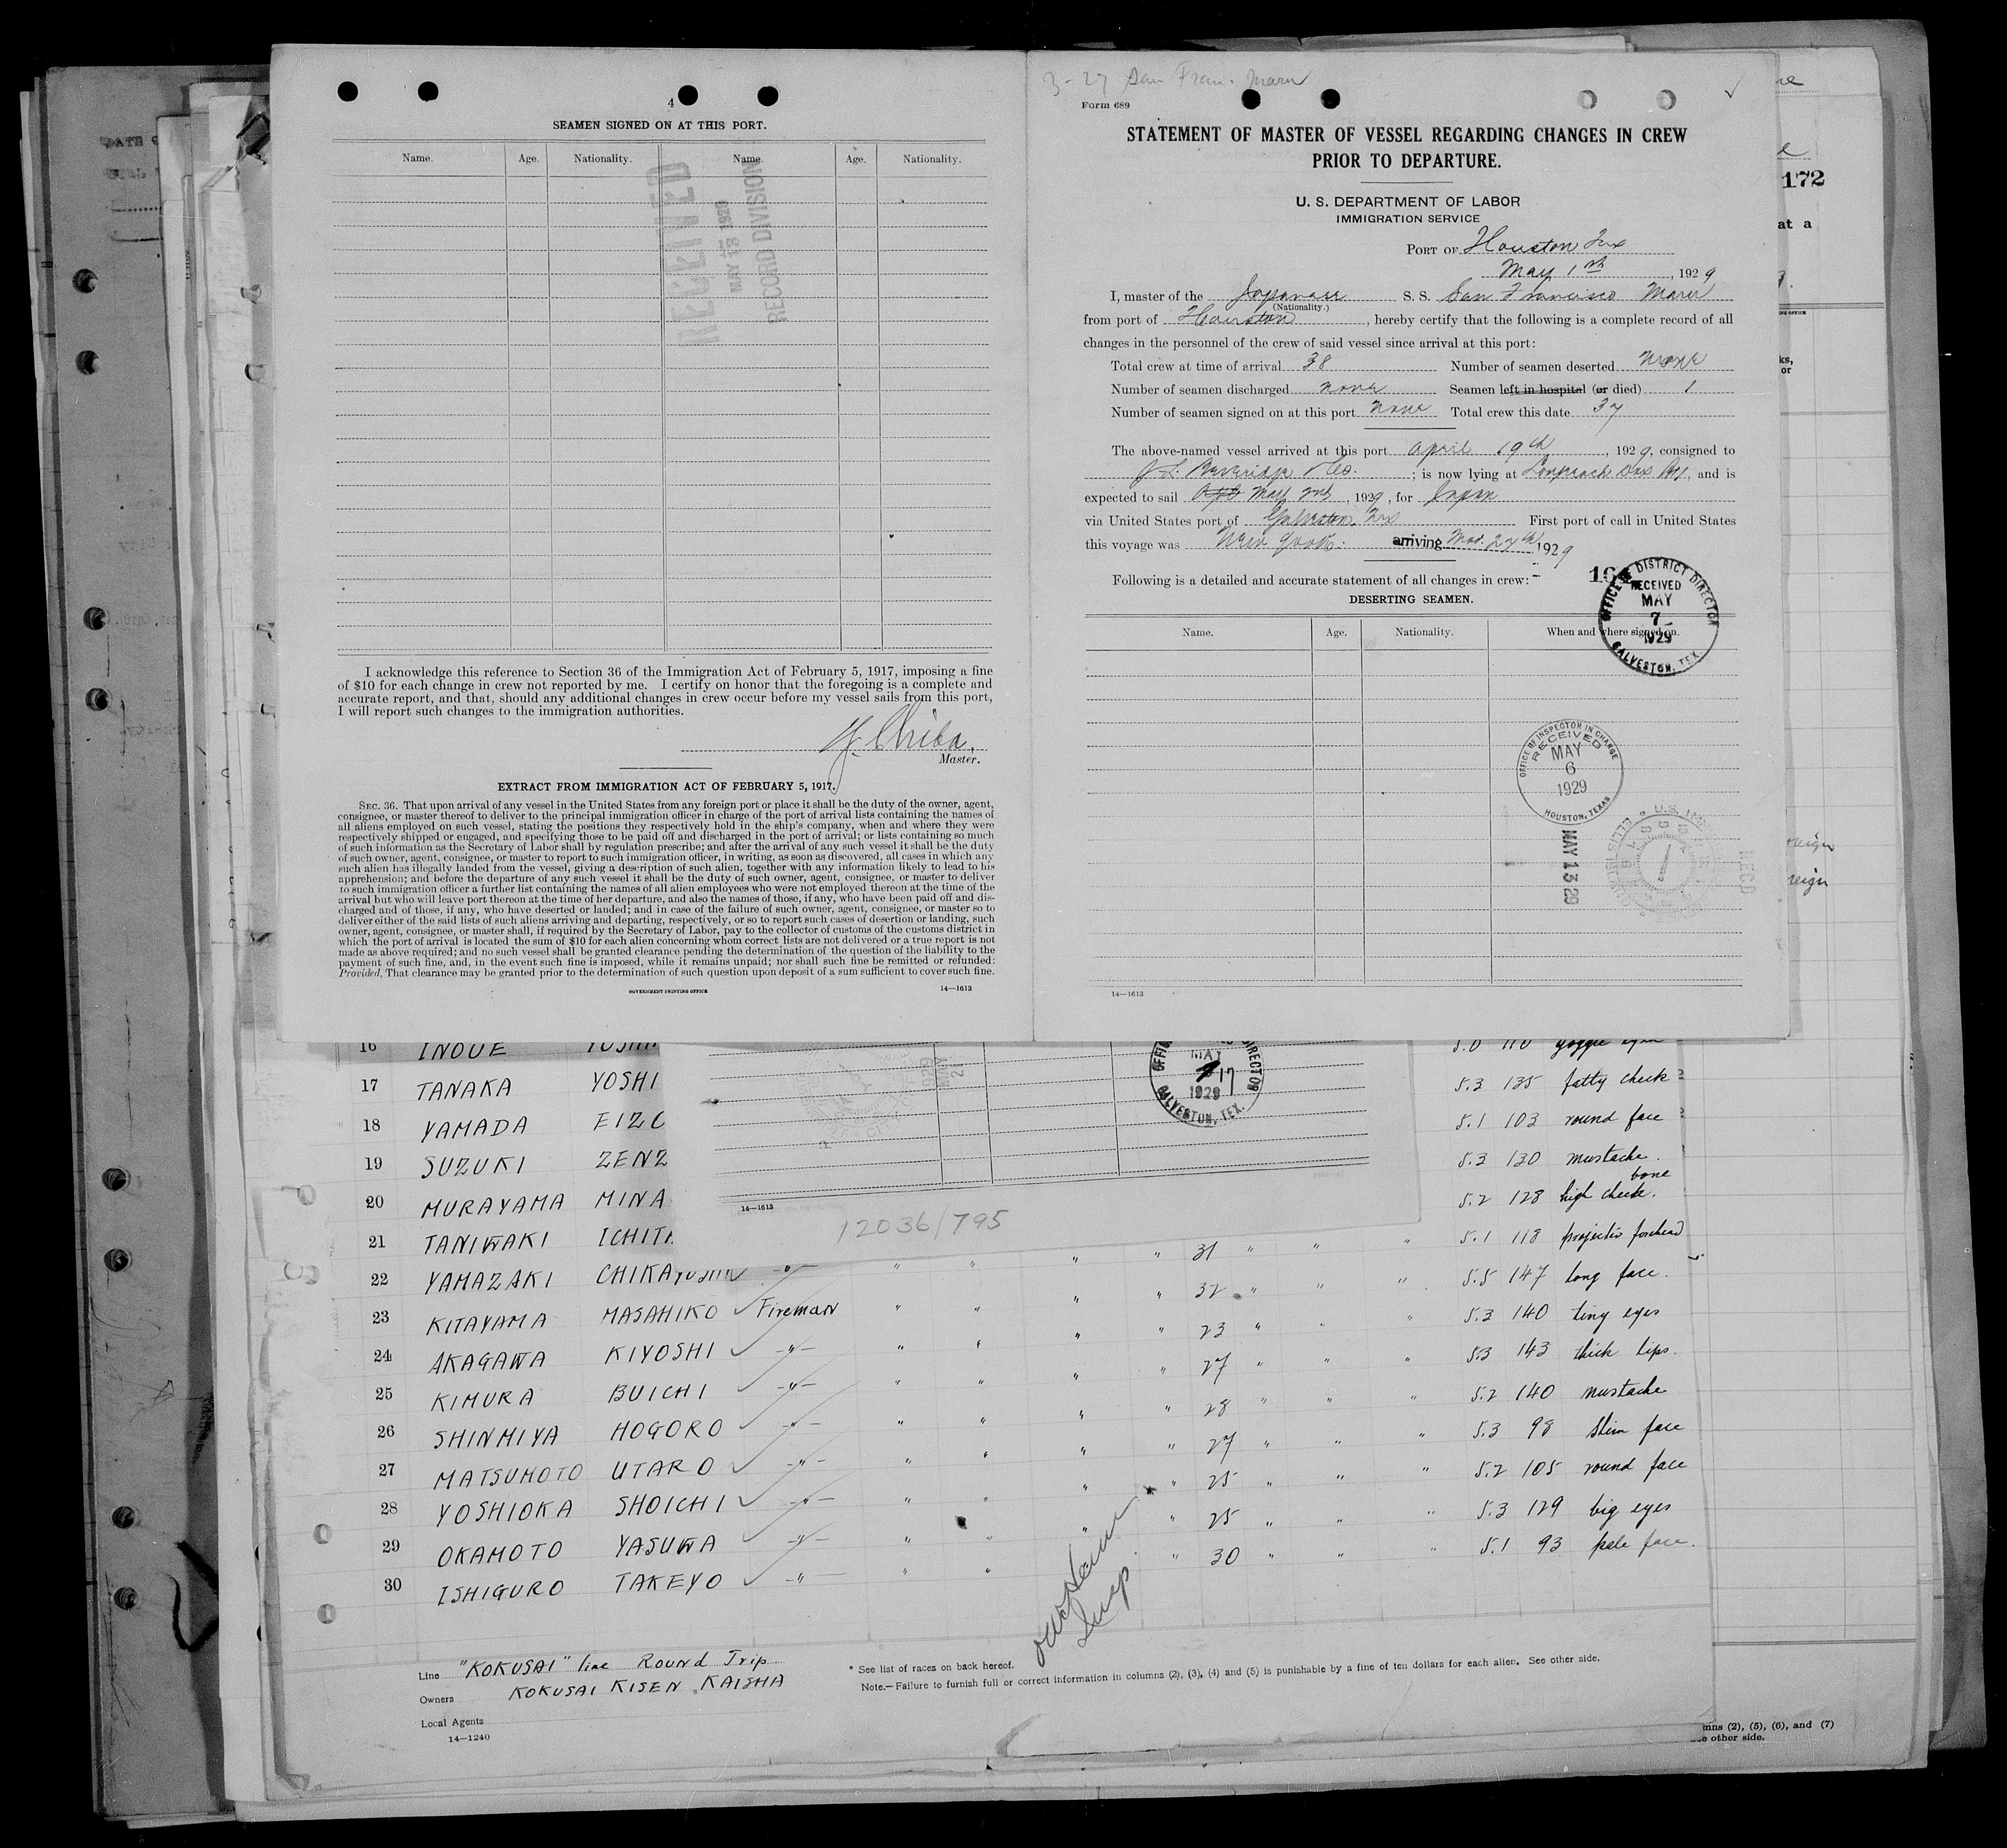 4
SEAMEN SIGNED ON AT THIS PORT.
Name. Age. Nationality. Name. Age. Nationality.
RECEIVED
MAY 13 1929
RECORD DIVISION
I acknowledge this reference to Section 36 of the Immigration Act of February 5, 1917, imposing a fine
of $10 for each change in crew not reported by me. I certify on honor that the foregoing is a complete and
accurate report, and that, should any additional changes in crew occur before my vessel sails from this port,
I will report such changes to the immigration authorities.
Chiba,
Master.
EXTRACT FROM IMMIGRATION ACT OF FEBRUARY 5, 1917.
SEC. 36. That upon arrival of any vessel in the United States from any foreign port or place it shall be the duty of the owner, agent,
consignee, or master thereof to deliver to the principal immigration officer in charge of the port of arrival lists containing the names of
all aliens employed on such vessel, stating the positions they respectively hold in the ship's company, when and where they were
respectively shipped or engaged, and specifying those to be paid off and discharged in the port of arrival; or lists containing so much
of such information as the Secretary of Labor shall by regulation prescribe; and after the arrival of any such vessel it shall be the duty
of such owner, agent, consignee, or master to report to such immigration officer, in writing, as soon as discovered, all cases in which any
such alien has illegally landed from the vessel, giving a description of such alien, together with any information likely to lead to his
apprehension; and before the departure of any such vessel it shall be the duty of such owner, agent, consignee, or master to deliver
to such immigration officer a further list containing the names of all alien employees who were not employed thereon at the time of the
arrival but who will leave port thereon at the time of her departure, and also the names of those, if any, who have been paid off and dis-
charged and of those, if any, who have deserted or landed; and in case of the failure of such owner, agent, consignee, or master so to
deliver either of the said lists of such aliens arriving and departing, respectively, or so to report such cases of desertion or landing, such
owner, agent, consignee, or master shall, if required by the Secretary of Labor, pay to the collector of customs of the customs district in
which the port of arrival is located the sum of $10 for each alien concerning whom correct lists are not delivered or a true report is not
made as above required; and no such vessel shall be granted clearance pending the determination of the question of the liability to the
payment of such fine, and, in the event such fine is imposed, while it remains unpaid; nor shall such fine be remitted or refunded:
Provided, That clearance may be granted prior to the determination of such question upon deposit of a sum sufficient to cover such fine.
GOVERNMENT PRINTING OFFICE 14—1613
3-27 San Fran. Maru
Form 689
STATEMENT OF MASTER OF VESSEL REGARDING CHANGES IN CREW
PRIOR TO DEPARTURE.
U. S. DEPARTMENT OF LABOR
IMMIGRATION SERVICE
PORT OF Houston Tex
May 1st, 1929
I, master of the Japanese S. S. San Francisco Maru
(Nationality.)
from port of Houston, hereby certify that the following is a complete record of all
changes in the personnel of the crew of said vessel since arrival at this port:
Total crew at time of arrival 38 Number of seamen deserted None
Number of seamen discharged none Seamen left in hospital (or died) 1
Number of seamen signed on at this port none Total crew this date 37
The above-named vessel arrived at this port April 19th, 1929, consigned to
J. L. Beveridge & Co.; is now lying at Longreach, and is
expected to sail May 2nd, 1929, for Japan
via United States port of Galveston Tex First port of call in United States
this voyage was New York. arriving Mar. 27th 1929
Following is a detailed and accurate statement of all changes in crew:
DESERTING SEAMEN.
Name. Age. Nationality. When and where signed on.
OFFICE OF DISTRICT DIRECTOR
RECEIVED
MAY
7
1929
GALVESTON, TEX.
OFFICE OF INSPECTOR IN CHARGE
RECEIVED
MAY
6
1929
HOUSTON, TEXAS
MAY 13 29
REC'D
14—1613
172
at a
ks,
or
reign
16 INOUE
17 TANAKA YOSHI 5.3 135 fatty cheek
18 YAMADA EIZO 5.1 103 round face
19 SUZUKI ZENZ 5.3 130 mustache.
20 MURAYAMA MINA 5.2 128 high cheek bone.
21 TANIWAKI ICHITA 31 " " " 5.1 118 projectio forehead
22 YAMAZAKI CHIKAYOSHI -"- " " " " 32 " " " 5.5 147 long face.
23 KITAYAMA MASAHIKO Fireman " " " " 23 " " " 5.3 140 tiny eyes
24 AKAGAWA KIYOSHI -"- " " " " 27 " " " 5.3 143 thick lips.
25 KIMURA BUICHI -"- " " " " 28 " " " 5.2 140 mustache
26 SHINMIYA HOGORO -"- " " " " 27 " " " 5.3 98 slim face
27 MATSUMOTO UTARO -"- " " " " 25 " " " 5.2 105 round face
28 YOSHIOKA SHOICHI -"- " " " " 25 " " " 5.3 129 big eyes
29 OKAMOTO YASUWA -"- " " " " 30 " " " 5.1 93 pale face.
30 ISHIGURO TAKEYO -"- " "
MAY
17
1929
GALVESTON, TEX.
14—1613
12036/795
Insp.
Line "KOKUSAI" line ROUND Trip.
Owners KOKUSAI KISEN KAISHA
Local Agents
14—1240
* See list of races on back hereof.
Note.—Failure to furnish full or correct information in columns (2), (3), (4) and (5) is punishable by a fine of ten dollars for each alien. See other side.
mns (2), (5), (6), and (7)
other side.